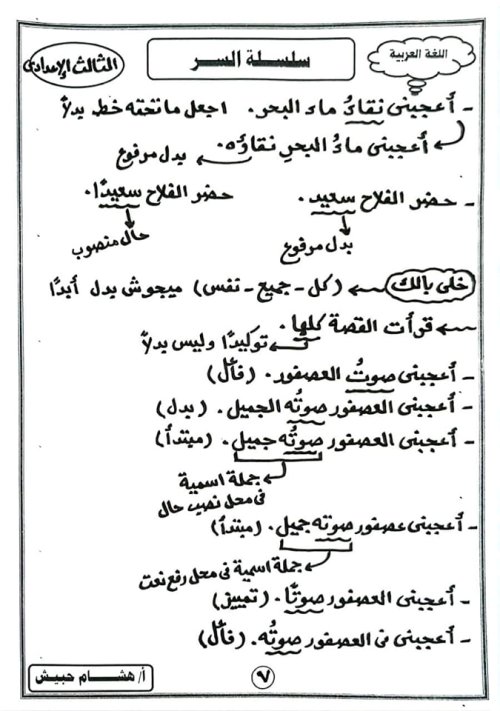 اللغة العربية
سلسلة السر
الثالث الإعدادى
- أعجبنى نقاءُ ماء البحر. اجعل ما تحته خط بدلاً
أعجبنى ماءُ البحرِ نقاؤُه. بدل مرفوع
- حضر الفلاح سعيد. حضر الفلاح سعيدًا.
بدل مرفوع حال منصوب
خلى بالك (كل - جميع - نفس) ميجوش بدل أبدًا
قرأت القصة كلها.
توكيدًا وليس بدلاً
- أعجبنى صوتُ العصفور. (فاعل)
- أعجبنى العصفور صوتُه الجميل. (بدل)
- أعجبنى العصفور صوتُه جميل. (مبتدأ)
جملة اسمية
فى محل نصب حال
- أعجبنى عصفور صوته جميل. (مبتدأ)
جملة اسمية فى محل رفع نعت
- أعجبنى العصفور صوتًا. (تمييز)
- أعجبنى فى العصفور صوتُه. (فاعل)
أ/ هشام حبيش
٧